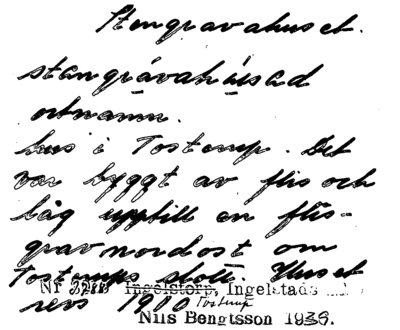 Stengravahuset.
stangrávahúsad
ortnamn.
hus i Tostarup. Det
var byggt av flis och
låg upptill en flis-
grav nordost om
Tostarups slott. Huset
revs 1910 Tostarup
Nr 3288 Ingelstorp, Ingelstads
Nils Bengtsson 1936.